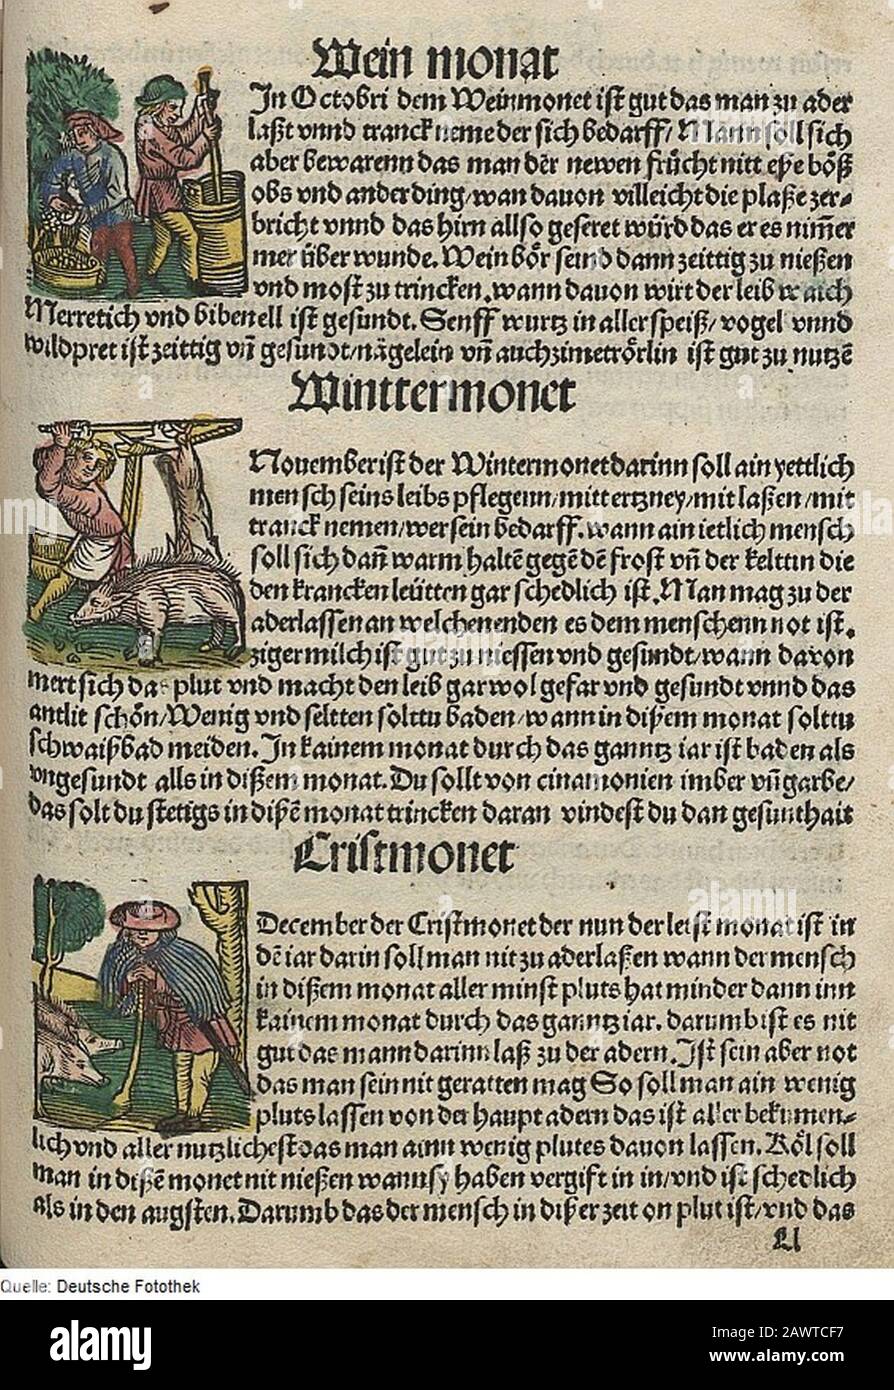 Wein monat
In Octobri dem Weinmonet ist gut das man zu ader
laßt vnnd tranck neme der sich bedarff/ Mann soll sich
aber bewarenn das man der newen frücht nitt eße böß
obs vnd ander ding/wan dauon villeicht die plaße zer-
bricht vnnd das hirn allso geseret würd das er es nim̃er
mer über wunde. Wein bör seind dann zeittig zu nießen
vnd most zu trincken.wann dauon wirt der leib waich
Merretich vnd bibenell ist gesundt. Senff wurtz in aller speiß/ vogel vnnd
wildpret ist zeittig vñ gesundt/nägelein vñ auch zimetrörlin ist gut zu nutzẽ
Winttermonet
Nouember ist der Wintermonet darinn soll ain yettlich
mensch seins leibs pflegenn/mitt ertzney/mit laßen/mit
tranck nemen/wer sein bedarff.wann ain ietlich mensch
soll sich dañ warm haltẽ gegẽ dẽ frost vñ der keltin die
den krancken leütten gar schedlich ist.Man mag zu der
aderlassen an welchen enden es dem menschenn not ist.
ziger milch ist gut zu niessen vnd gesundt/wann dauon
mert sich das plut vnd macht den leib gar wol gefar vnd gesundt vnnd das
antlit schön/Wenig vnd seltten solttu baden/wann in dißem monat solttu
schwaißbad meiden.In kainem monat durch das ganntz iar ist baden als
vngesundt alls in dißem monat.Du sollt von cinamonien imber vñ garbe/
das solt du stetigs in dißẽ monat trincken daran vindest du dan gesunthait
Cristmonet
December der Cristmonet der nun der letst monat ist in
dẽ iar darin soll man nit zu aderlaßen wann der mensch
in dißem monat aller minst pluts hat minder dann inn
kainem monat durch das ganntz iar.darumb ist es nit
gut das mann darinn laß zu der adern.Ist sein aber not
das man sein nit geratten mag So soll man ain wenig
pluts lassen von der haupt adern das ist aller bekumen-
lich vnd aller nutzlichest das man ainn wenig plutes dauon lassen.Köl soll
man in dißẽ monet nit nießen wann sy haben vergifft in in/vnd ist schedlich
als in den augsten.Darumb das der mensch in dißer zeit on plut ist/vnd das
Ll
Quelle: Deutsche Fotothek
alamy
Image ID: 2AWTCF7
www.alamy.com